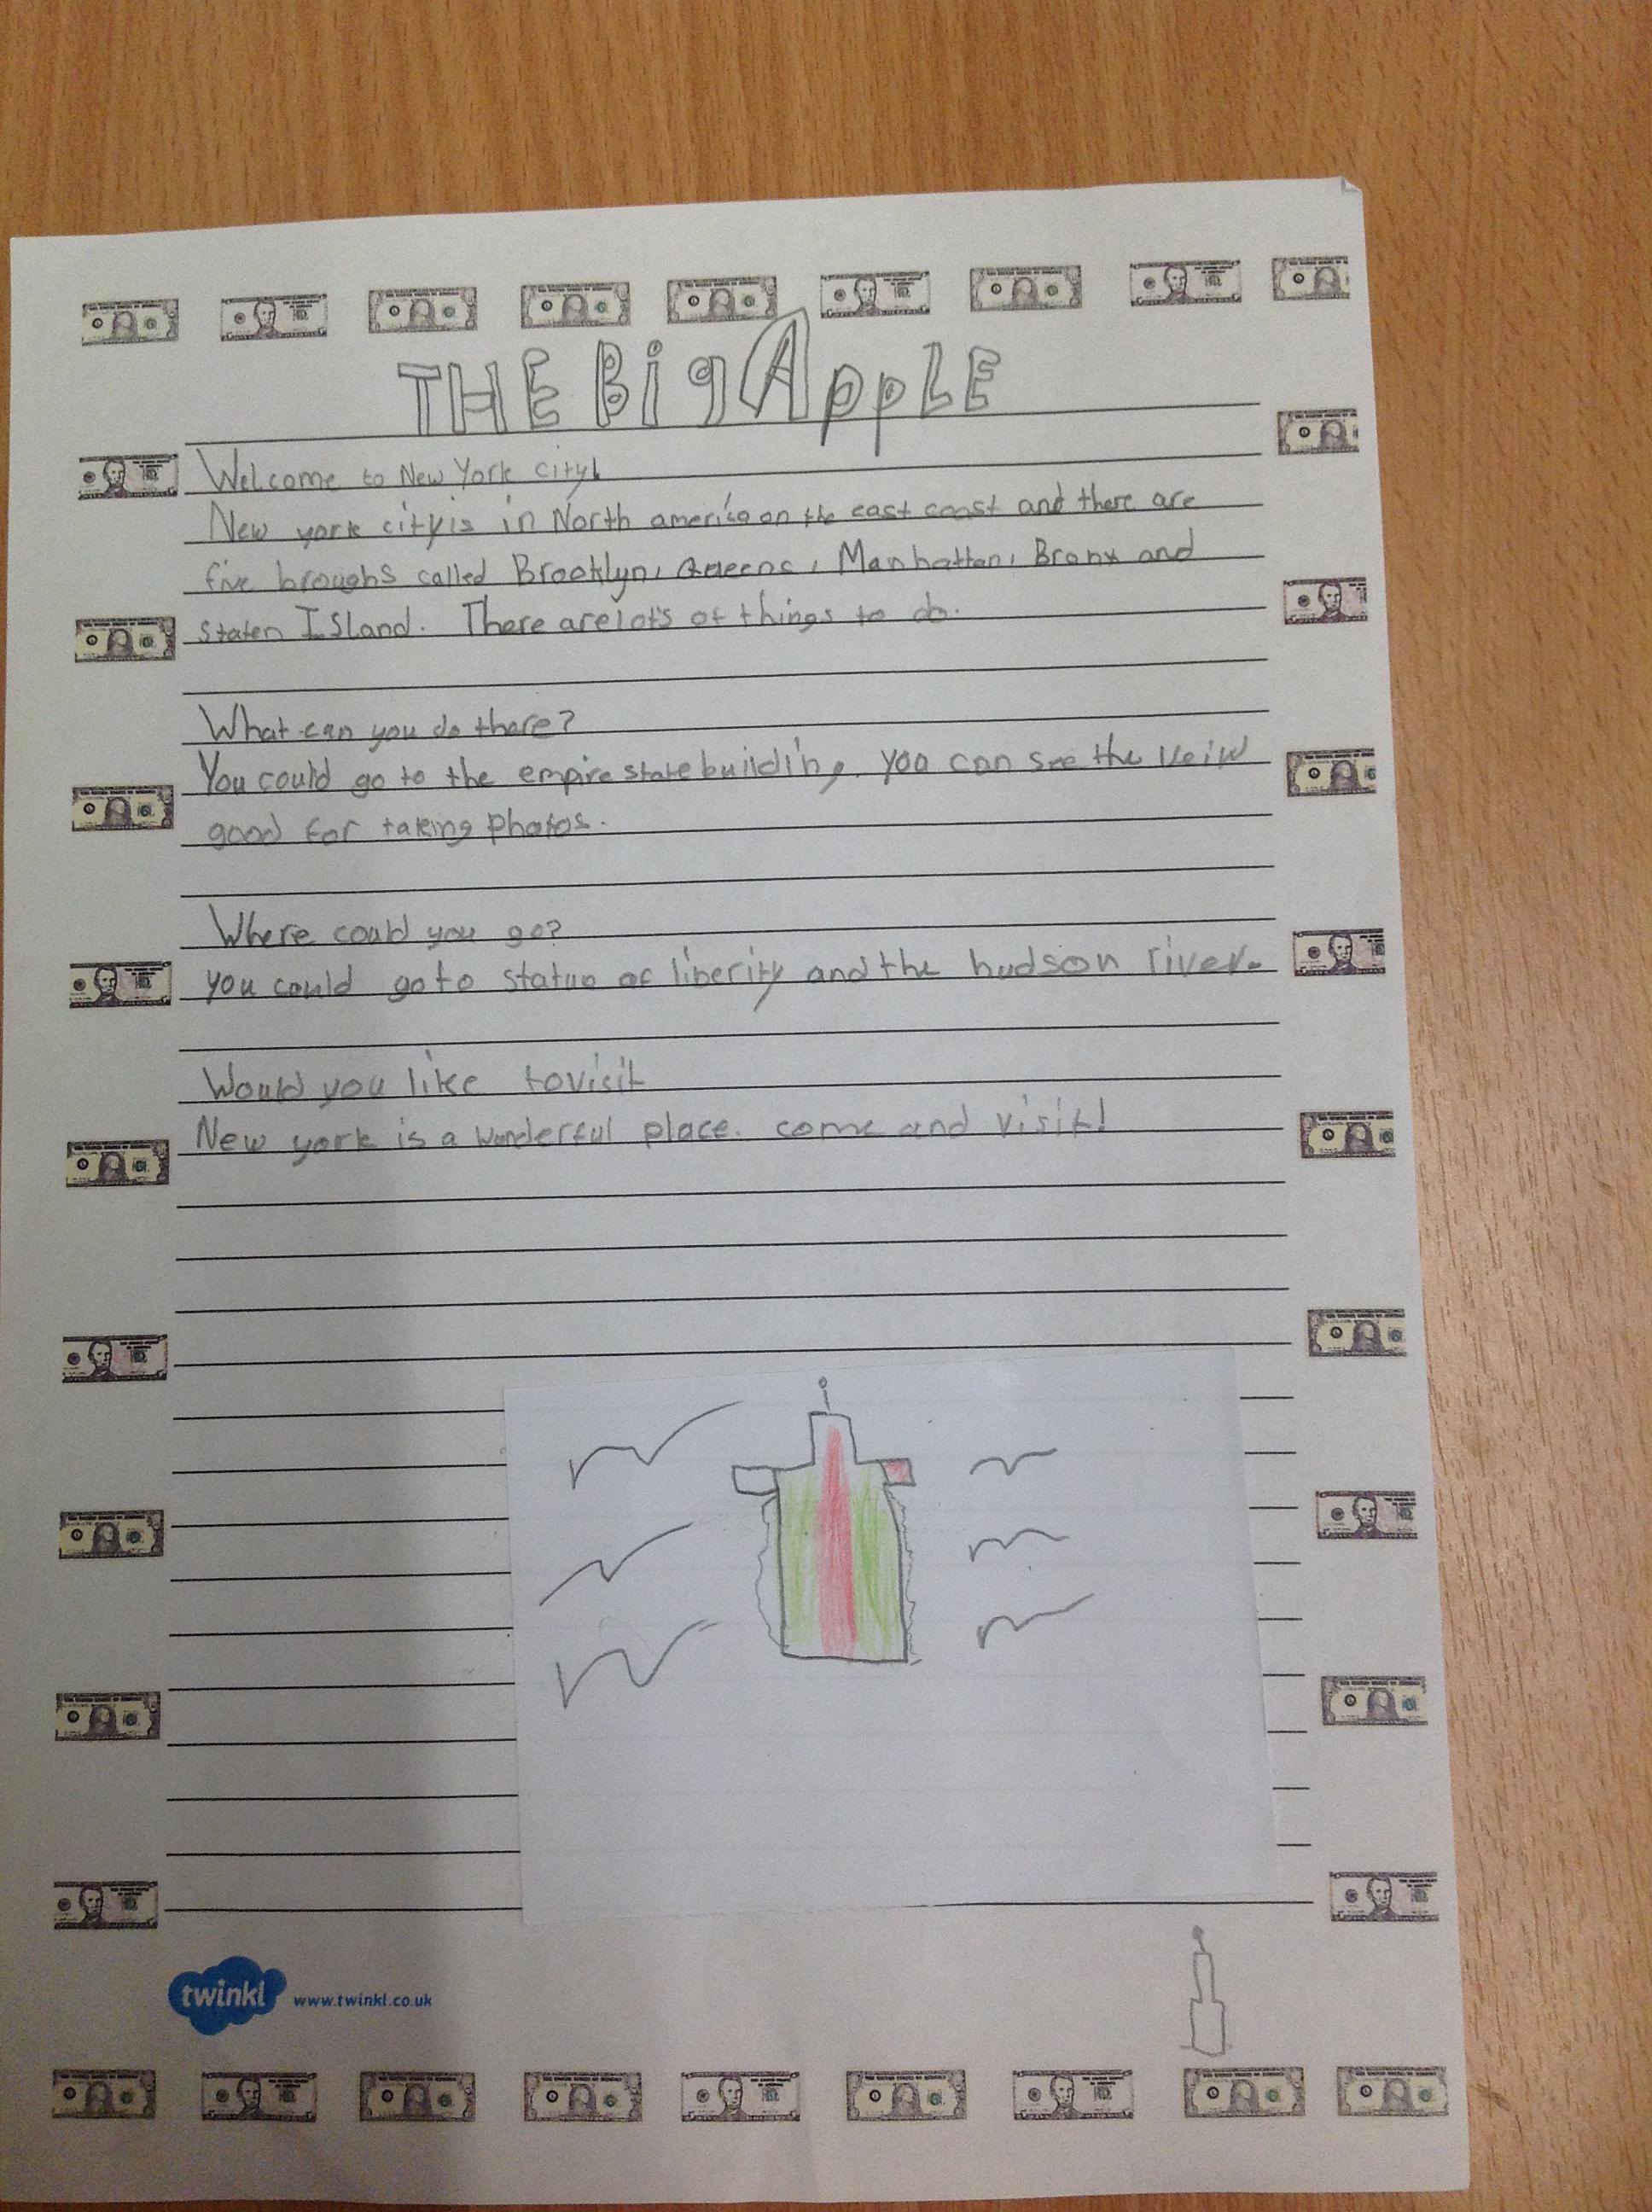 THE Big AppLE
Welcome to New York city!
New york city is in North america on the east coast and there are
five broughs called Brooklyn, Queens, Manhattan, Bronx and
staten ISland. There are lots of things to do.
What can you do there?
You could go to the empire state building. you can see the veiw
good for taking photos.
Where could you go?
you could go to statue of liberity and the hudson river.
Would you like to visit
New york is a wonderful place. come and visit!
twinkl www.twinkl.co.uk